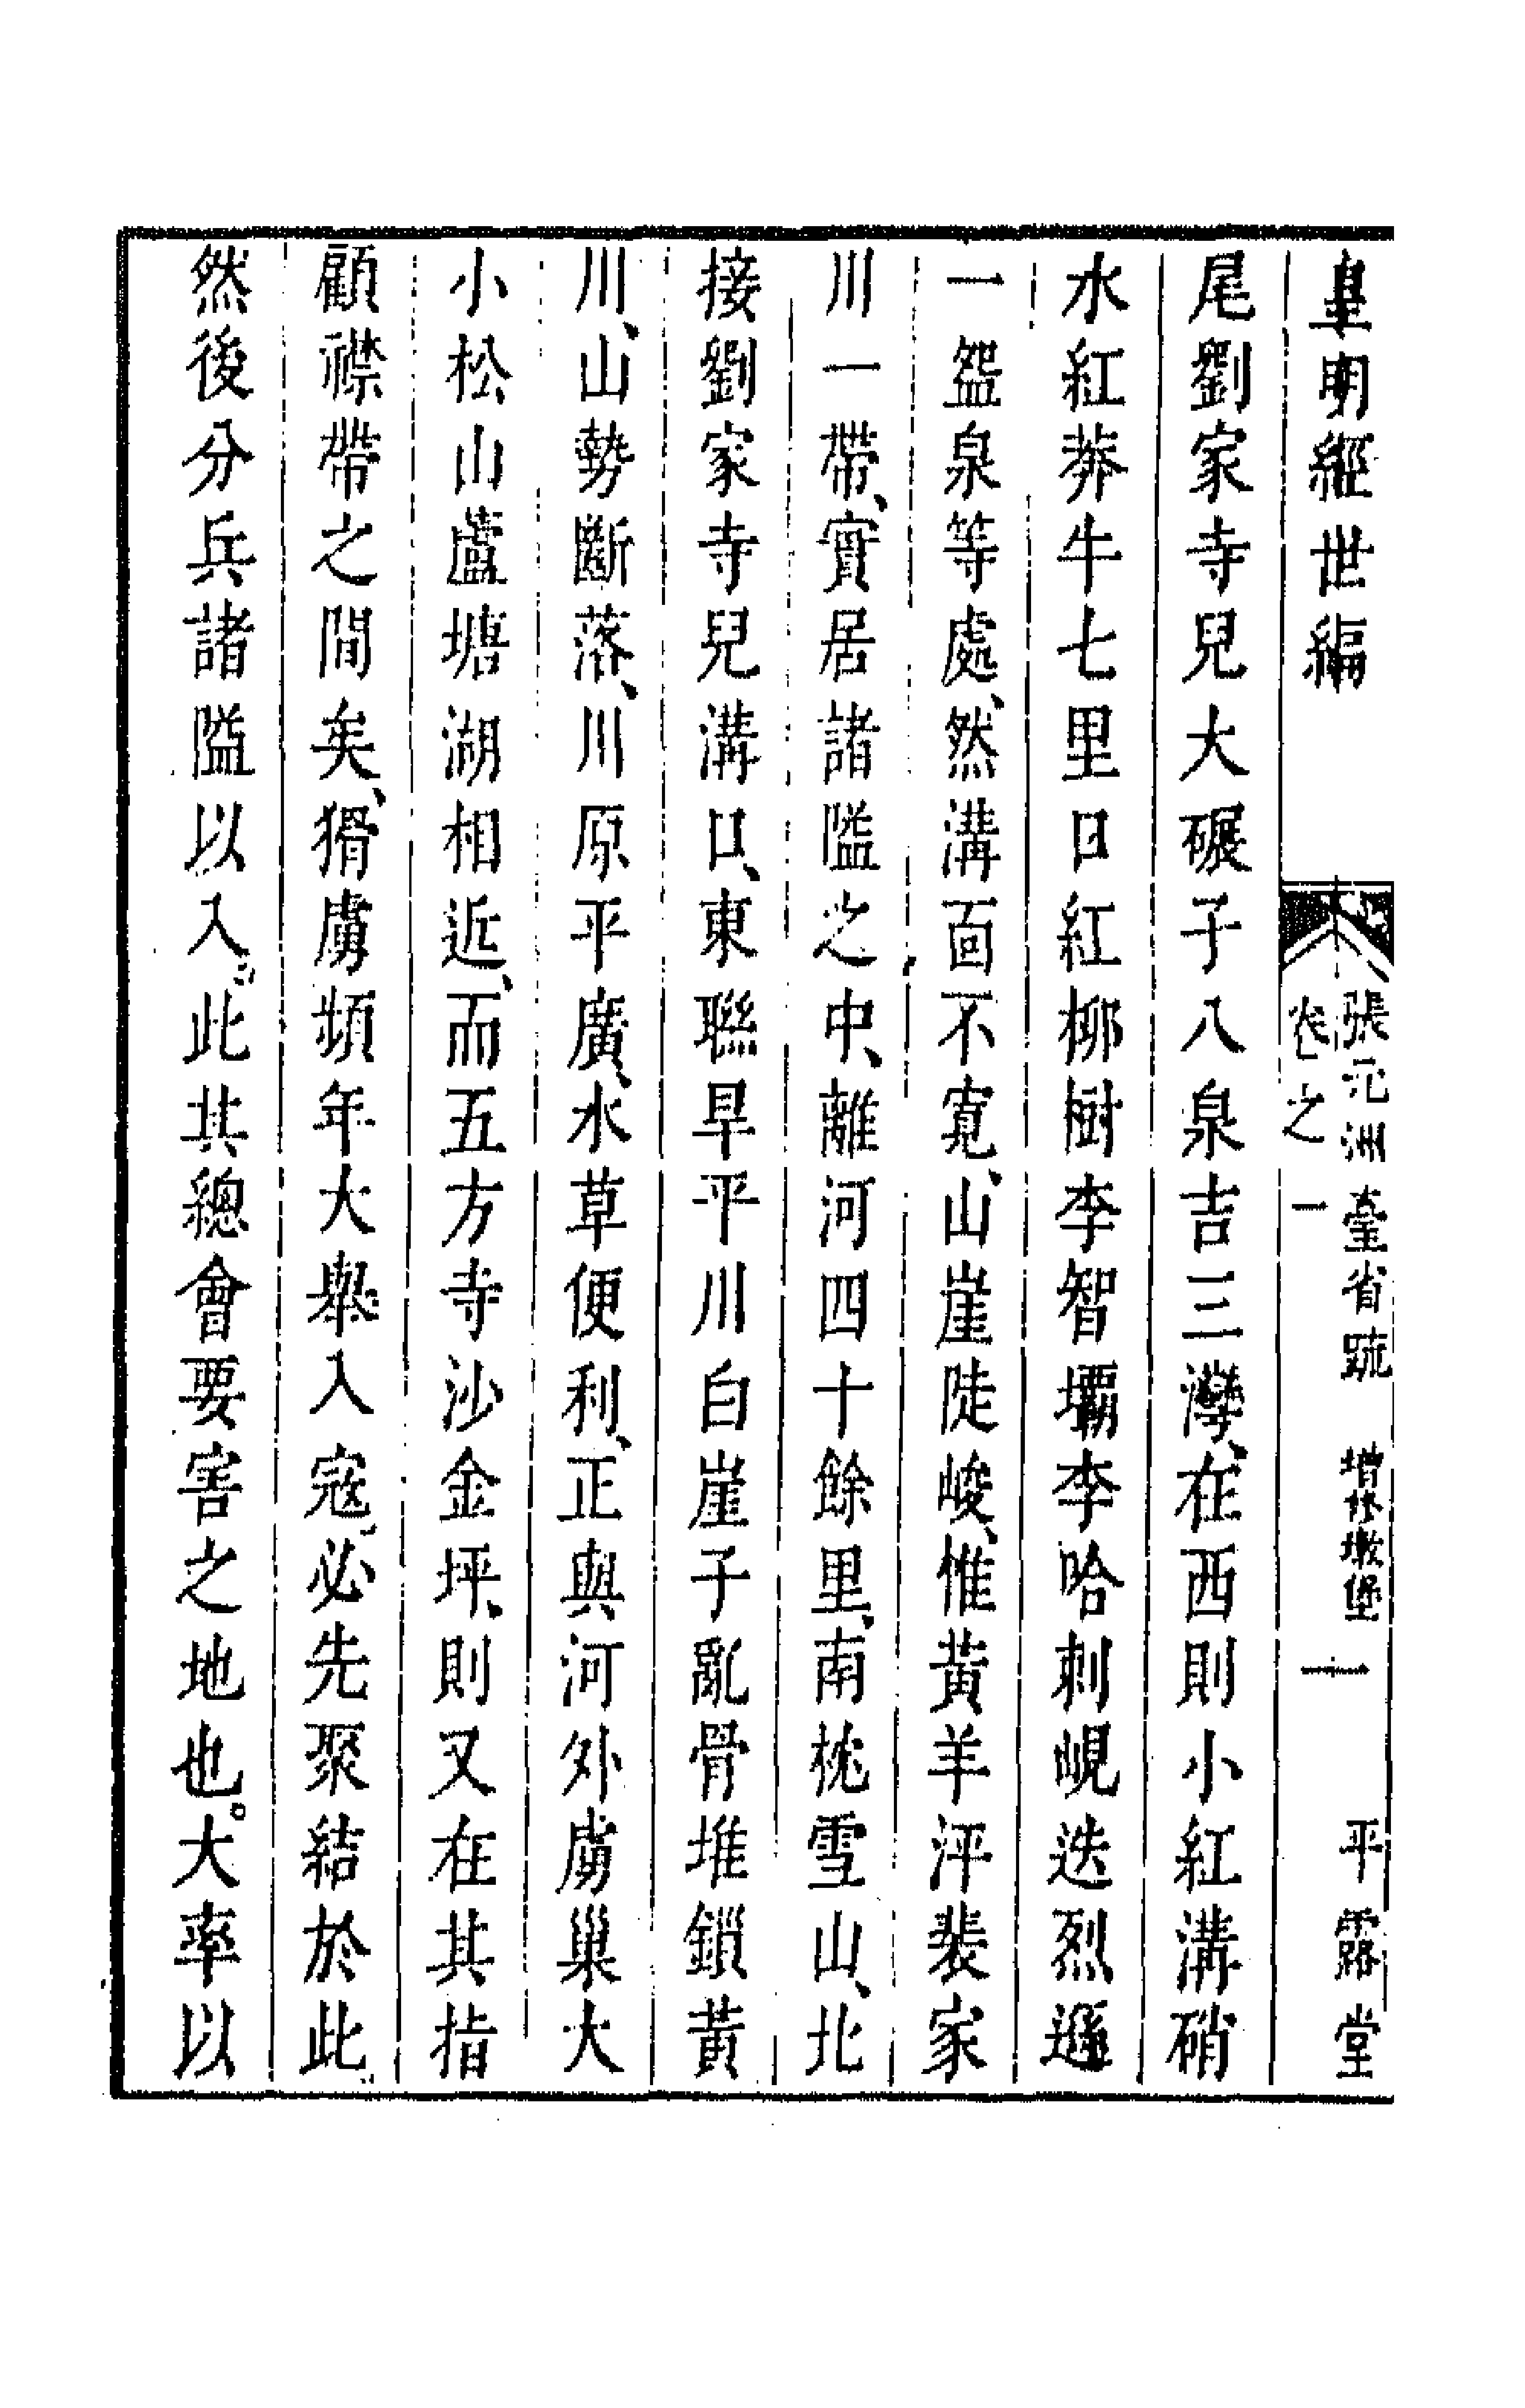 皇明經世編 張元洲臺省疏 卷之一 增修墩堡 一 平露堂
尾劉家寺兒大碾子八泉吉三灣、在西則小紅溝硝
水紅莽牛七里口紅柳樹李智壩李哈剌峴迭烈遜
一盌泉等處、然溝面不寬、山崖陡峻、惟黃羊泙裴家
川一帶、實居諸隘之中、離河四十餘里、南枕雪山、北
接劉家寺兒溝口、東聯旱平川白崖子亂骨堆鎖黃
川、山勢斷落、川原平廣、水草便利、正與河外虜巢大
小松山蘆塘湖相近、而五方寺沙金坪、則又在其指
顧襟帶之間矣、猾虜頻年大舉入寇、必先聚結於此
然後分兵諸隘以入。此其總會要害之地也。大率以